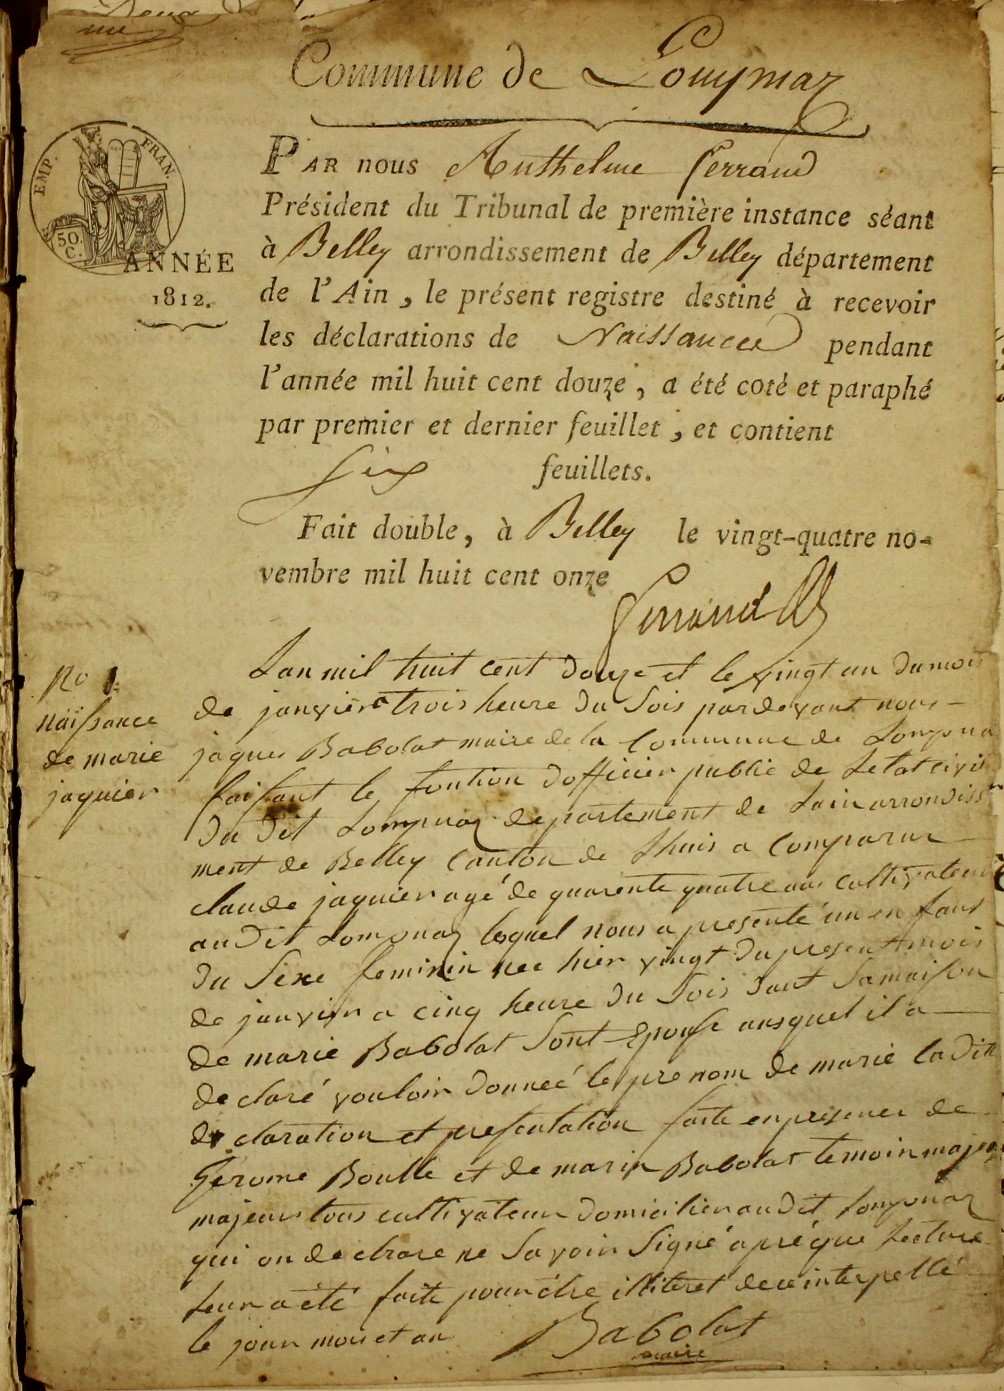 Commune de Lompnaz
EMP. FRAN.
50.
C.
ANNÉE
1812.
PAR nous Anthelme ferrand
Président du Tribunal de première instance séant
à Belley arrondissement de Belley département
de l'Ain, le présent registre destiné à recevoir
les déclarations de Naissances pendant
l'année mil huit cent douze, a été coté et paraphé
par premier et dernier feuillet, et contient
six feuillets.
Fait double, à Belley le vingt-quatre no-
vembre mil huit cent onze
ferrand
No 1.
naissance
de marie
jaquier
Lan mil huit cent douze et le vingt un du mois
de janvier a trois heure du Soir pardevant nous
jaques Babolat maire de la Commune de Lompna
faisant le fontion dofficier public de Letat civil
du dit Lompnaz departement de Lain arrondiss
ment de Belley Canton de Lhuis a Comparu
claude jaquier agé de quarente quatre ans cultivateur
au Dit Lompnaz lequel nous a presenté un en fant
du Sexe feminin nee hier vingt du present mois
de janvier a cinq heure du Soir dant Samaison
de marie Babolat Sont Epouse ausquel il a
declaré vouloir donneé le prenom de marie la Dite
declaration et presentation faite en presence de
Gerome Boulle et de marin Babolat temoin majeu
majeur tous cultivateur domicilier au dit Lompnaz
qui on declare ne Savoir Signé apré que Lecture
leur a été faite pour être illiteret de ce interpellé
le jour mois et an Babolat
maire